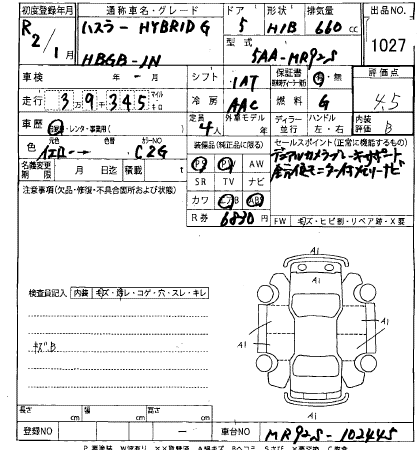 初度登録年月 通称車名・グレード ドア 形状 排気量 出品NO.
R2/1 ハスラー HYBRID G 5 H/B 660 cc 1027
HBGB-1N 型式 5AA-MR92S
車検 年 - 月 シフト IAT 保証書 有・無 評価点
走行 39345 マイル km 冷房 AAC 燃料 G 4.5
車歴 自家用・レンタ・事業用( ) 定員 4人 外車モデル 年 ディーラー 並行 ハンドル 左・右 内装評価 B
色 元色 イエロー 色替 カラーNO C2G 装備品(純正品に限る) セールスポイント(正常に機能するもの)
PS PW AW デュアルカメラブレーキサポート
名義変更期限 月 日迄 積載 t SR TV ナビ
注意事項(欠品・修復・不具合箇所および状態) カワ エアB ABS
R券 6830 円 FW キズ・ヒビ割・リペア跡・X要
検査員記入 内装 キズ・汚レ・コゲ・穴・スレ・キレ
キズB
A1
A1
A1
A1
A1
長さ cm 幅 cm 高さ cm
登録NO - 車台NO MR92S-102445